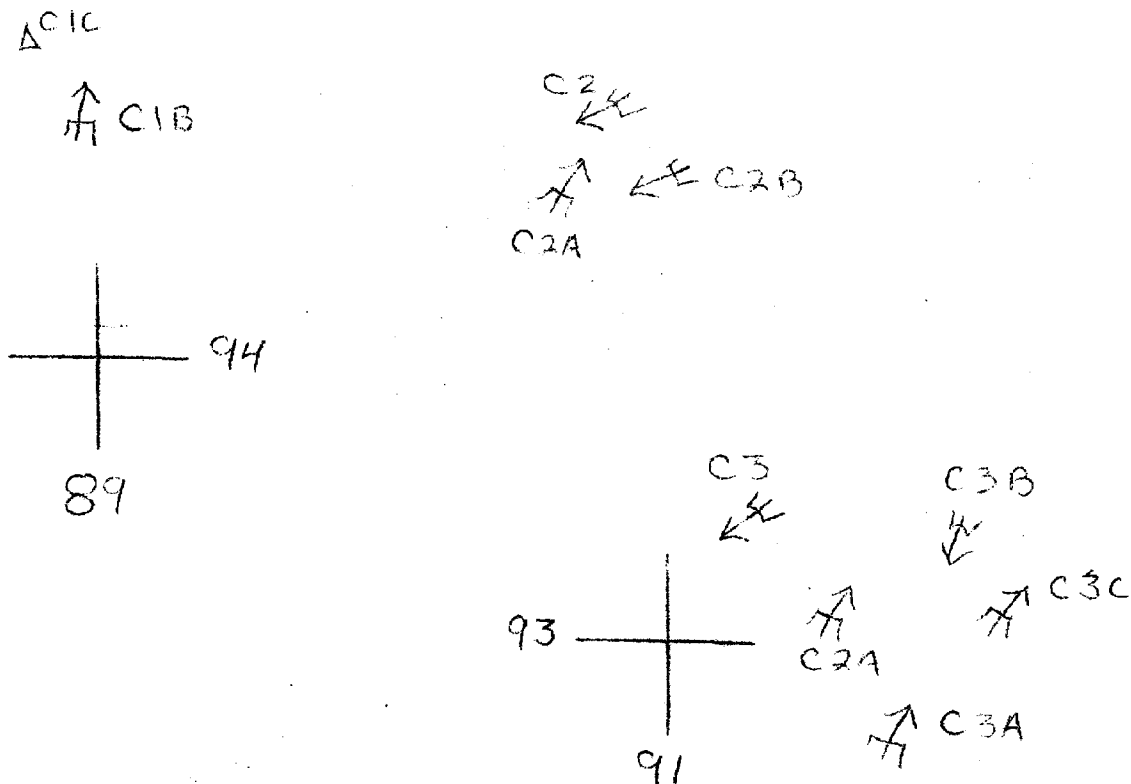 C1C
C1B
C2
C2B
C2A
94
89
C3
C3B
C3C
93
C2A
C3A
91